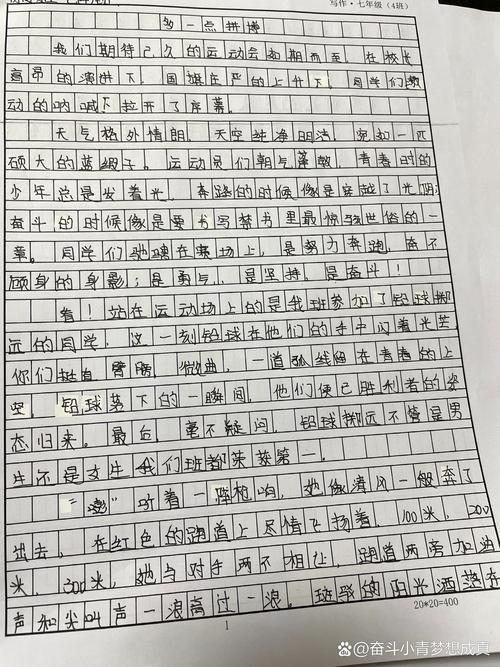 写作·七年级（4班）
多一点拼博
我们期待已久的运动会如期而至，在校长
高昂的演讲下，国旗庄严的上升下，同学们激
动的呐喊下拉开了序幕。
天气格外情朗，天空纯净明洁，宛如一匹
硕大的蓝缎子。运动员们朝气蓬勃，青春时的
少年总是发着光，奔跑的时候像是穿越了光阴；
奋斗的时候像是要书写禁书里最惊骇世俗的一
章。同学们驰骋在赛场上，是努力奔跑，奋不
顾身的身影；是勇气，是坚持，是奋斗！
看！站在运动场上的是我班参加了铅球掷
远的同学，这一刻铅球在他们的手中闪着光芒，
你们挺直臂膀，微曲，一道弧线留在青春的上
空，铅球落下的一瞬间，他们便已胜利者的姿
态归来。最后，毫不疑问，铅球掷远不管是男
生还是女生我们班都荣获第一。
“嘭”听着一阵枪响，她像清风一般奔了
出去，在红色的跑道上尽情飞扬着，100米，200
米，300米，她与对手两不相让，跑道两旁加油
声和尖叫声一浪高过一浪。斑驳的阳光洒落在
20*20=400
1
百家号/奋斗小青梦想成真